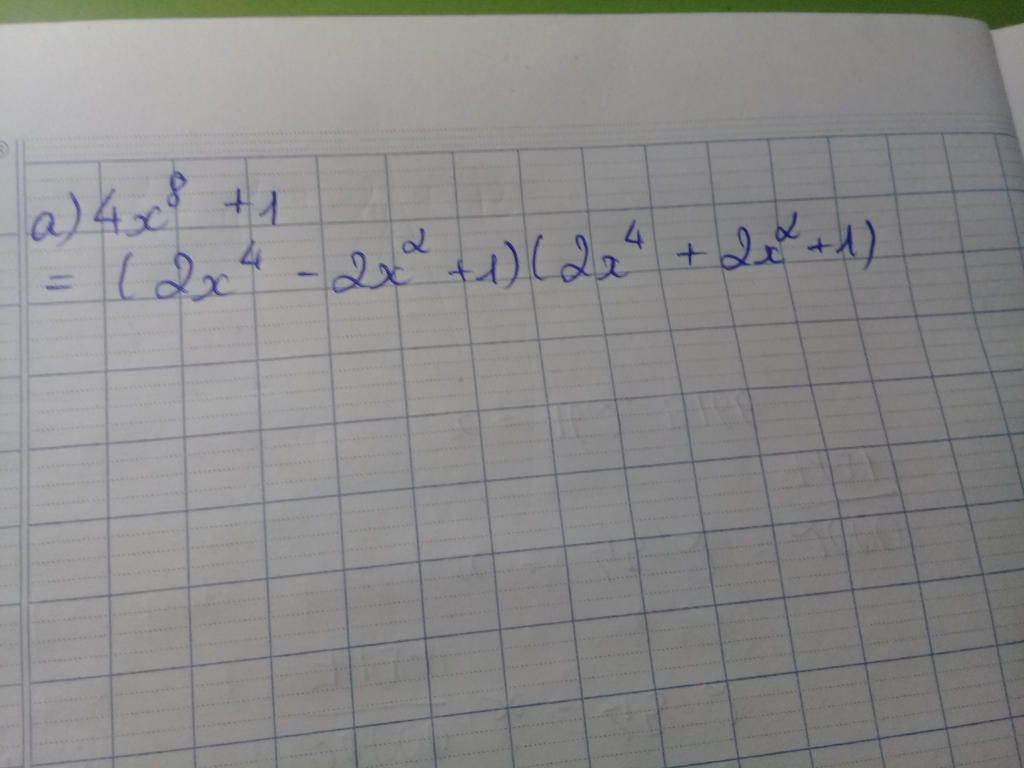 a) 4x⁸ + 1
= (2x⁴ - 2x² + 1)(2x⁴ + 2x² + 1)